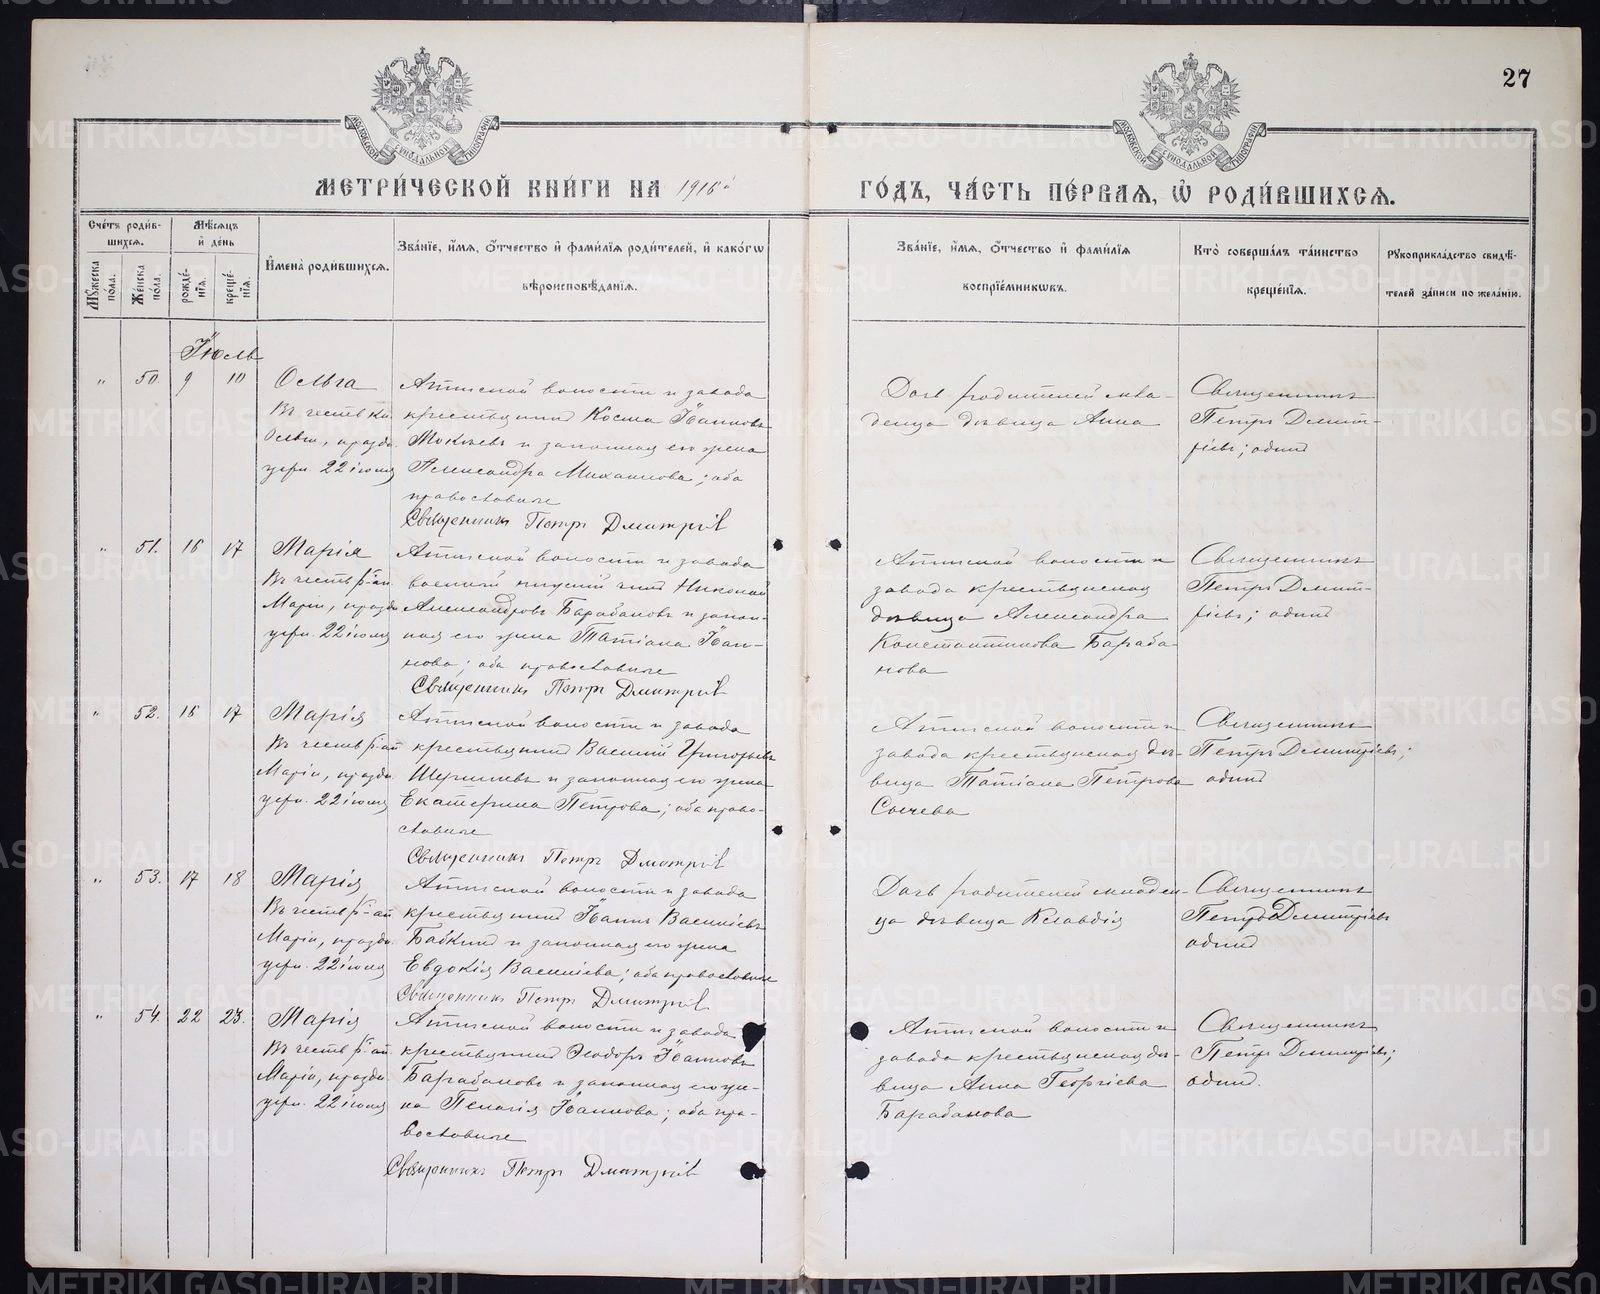 27
МЕТРИ́ЧЕСКОЙ КНИ́ГИ НА 1916й
ГО́ДЪ, ЧА́СТЬ ПЕ́РВАЯ, Ѽ РОДИ́ВШИХСЯ.
Сче́тъ роди́в-
шихся.
Мѣ́сяцъ
и҆ де́нь
И҆мена̀ роди́вшихся.
Зва́нїе, и҆́мя, ѻ҆́тчество и҆ фами́лїя роди́телей, и҆ како́гѡ
вѣроисповѣ́данїя.
Зва́нїе, и҆́мя, ѻ҆́тчество и҆ фами́лїя
воспрїе́мникѡвъ.
Кто̀ соверша́лъ та́инство
креще́нїя.
Рꙋкоприкла́дство свидѣ́-
телей за́писи по жела́нїю.
Мꙋ́жеска по́ла.
Же́нска по́ла.
рожде́-нїя.
креще́-нїя.
Іюль
" 50. 9 10 Ольга
Въ честь кн.
Ольги, праздн.
11 іюля
Атигской волости и завода
крестьянинъ Косма Іоанновъ
и законная его жена
Александра Михаилова; оба
православные
Священникъ Петръ Дмитріевъ
Дочь родителей мла-
денца дѣвица Анна
Священникъ
Петръ Димит-
ріевъ; одинъ
" 51. 16 17 Марія
Въ честь р-ап.
Маріи, праздн.
церк. 22 іюля
Атигской волости и завода
военный нижній чинъ Николай
Александровъ Барабановъ и закон-
ная его жена Татіана Іоан-
нова; оба православные
Священникъ Петръ Дмитріевъ
Атигской волости и
завода крестьянская
дѣвица Александра
Константинова Бараба-
нова
Священникъ
Петръ Димит-
ріевъ; одинъ
" 52. 16 17 Марія
Въ честь р-ап.
Маріи, праздн.
церк. 22 іюля
Атигской волости и завода
крестьянинъ Василій Григорьевъ
и законная его жена
Екатерина Петрова; оба право-
славные
Священникъ Петръ Дмитріевъ
Атигской волости и
завода крестьянская дѣ-
вица Татіана Петрова
Сычева
Священникъ
Петръ Димитріевъ;
одинъ
" 53. 17 18 Марія
Въ честь р-ап.
Маріи, праздн.
церк. 22 іюля
Атигской волости и завода
крестьянинъ Іоаннъ Василіевъ
Бабкинъ и законная его жена
Евдокія Василіева; оба православные
Священникъ Петръ Дмитріевъ
Дочь родителей младен-
ца дѣвица Клавдія
Священникъ
Петръ Димитріевъ
одинъ
" 54. 22 23. Марія
Въ честь р-ап.
Маріи, праздн.
церк. 22 іюля
Атигской волости и завода
крестьянинъ Ѳеодоръ Іоанновъ
Барабановъ и законная его же-
на Пелагія Іоаннова; оба пра-
вославные
Священникъ Петръ Дмитріевъ
Атигской волости и
завода крестьянская дѣ-
вица Анна Георгіева
Барабанова
Священникъ
Петръ Димитріевъ;
одинъ.
METRIKI.GASO-URAL.RU